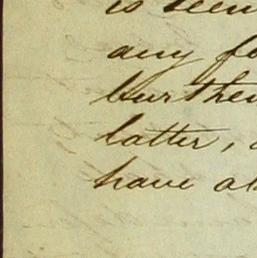 is seem
any fo
burthen
latter, a
have al